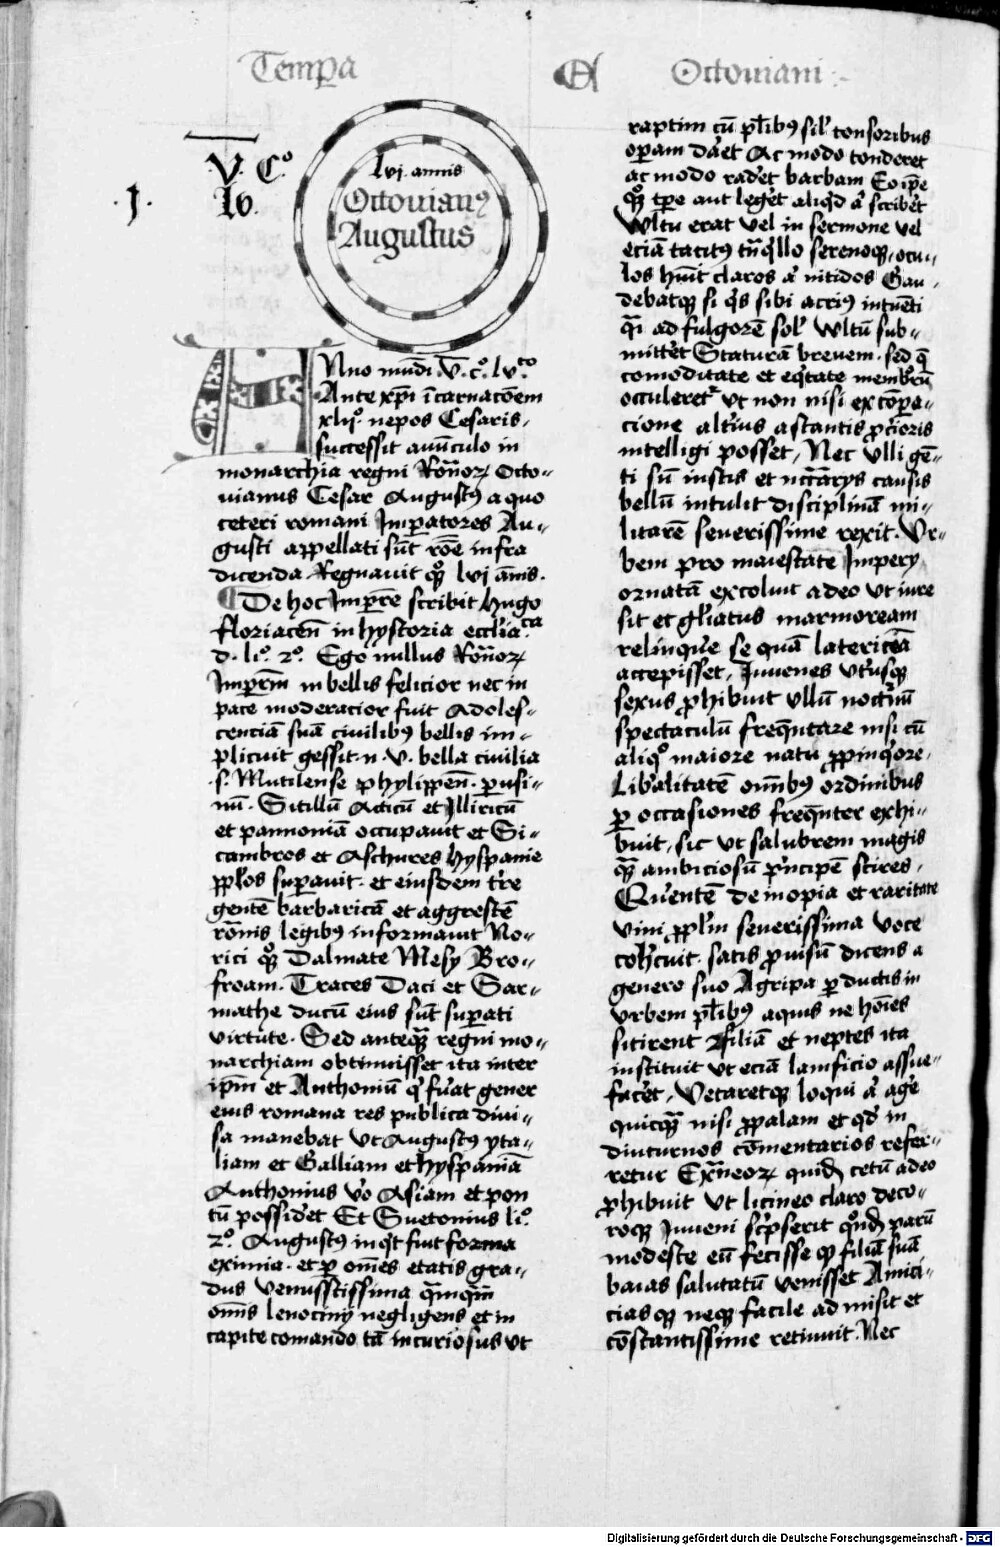 Temp̲a A Octouiani
.J. V̅. Cº
lv.
lvj annis
Octouianꝰ
Augustus
Anno mūdi .V̅.cº.lvto
Ante xp̄i īcarnacōem
xlijº. nepos Cesaris.
successit auūculo in
monarchia regni Rōnoꝝ Octo-
uianus Cesar Augustꝰ a quo
ceteri romani Imꝑatores Au-
gusti appellati sūt rōe infra
dicenda. Regnauit qꝫ lvj ānis.
De hoc Imꝑre scribit Hugo
floriaceñ in hystoria eccl'ia
d. liº. 2º. Ego nullus Rōnoꝝ
Imꝑm in bellis felicior nec in
pace moderacior fuit Adoles-
cenciā suā ciuilibꝰ bellis im-
plicuit gessit .n. V. bella ciuilia
.s. Mutilense phylippeñ. ꝑusi-
nū. Sitillū Acticū et Illiricū
et pannoniā occupauit et Si-
cambros et Aschures hyspanie
ppl'os suꝑauit. et eiusdem t're
gentē barbaricā et aggrestē
rōnis legibꝰ informauit No-
rici qꝫ Dalmate Mesy Bro-
froam. Traces Daci et Sar-
mathe ducū eius sūt suꝑati
virtute. Sed anteqꝫ regni mo-
narchiam obtinuisset ita inter
ip̄m et Anthoniū q' fu'at gener
eius romana res publica diui-
sa manebat vt Augustꝰ yta-
liam et Galliam et hyspaniā
Anthonius v'o Asiam et pon
tū possid'et Et Suetonius liº.
2º. Augustꝰ inq't fuit forma
eximia. et ꝑ om̄es etatis gra-
dus venusstissima q̄mq̄m
om̄s lenociny negligens et in
capite comando tā incuriosus vt
raptim cū pl'ibꝰ sil' tonsoribus
oꝑam da'et Ac modo tonderet
ac modo rad'et barbam Eoip̄e
qꝫ tꝑe aut leg'et aliq'd a' scrib'et
Wltu erat vel in sermone vel
eciā tacitꝰ tn̄q'llo serenoqꝫ ocu-
los h'uit claros a' nitidos Gau-
debatqꝫ si q's sibi acriꝰ intuēti
q̄i ad fulgorē sol' wltū sub-
mitt'et Staturā breuem. sed q̄
comoditate et eq'tate membrū
occuleret' vt non nisi ex cōꝑa-
cione alt'ius astantis ꝓcioris
intelligi posset, Nec vlli gē-
ti sū iustis et nc̄c̄arys causis
bellū intulit disciplinā mi-
litarē seuerissime rexit. Vr-
bem pro maiestate Impery
ornatā excoluit adeo vt iure
sit et gl'iatus marmoream
relinqu'e se quā latericeā
accepisset, Juuenes vt'usqꝫ
sexus ꝓhibuit vllū noct'nū
spectaculū freqn̄tare nisi cū
aliqº maiore natu ꝓpinq'ore,
Lib'alitatē om̄ibꝰ ordinibus
ꝑ occasiones freqn̄ter exhi-
buit, sic vt salubrem magis
qꝫ ambiciosū p'ncipē scires,
Qu'entē de inopia et raritate
vini ppl'm seuerissima voce
coh'cuit. satis ꝓuisū dicens a
genero suo Agripa ꝑductis in
vrbem pl'ibꝰ aquis ne hoīes
sitirent filiā et neptes ita
instituit vt eciā lanificio assue-
fac'et, Vetaretqꝫ loqui a' age'
quicqꝫ nisi ꝓpalam et qd' in
diuturnos cōmentarios refer-
retur Exn̄eoꝝ quid' cetū adeo
ꝓhibuit vt licineo claro deco-
roqꝫ Juueni sc'pserit qº'd' parū
modeste eū fecisse qꝫ filiā suā
baias salutatū venisset Amici-
cias qꝫ neqꝫ facile admisit et
cōstantissime retinuit. Nec
Digitalisierung gefördert durch die Deutsche Forschungsgemeinschaft - DFG